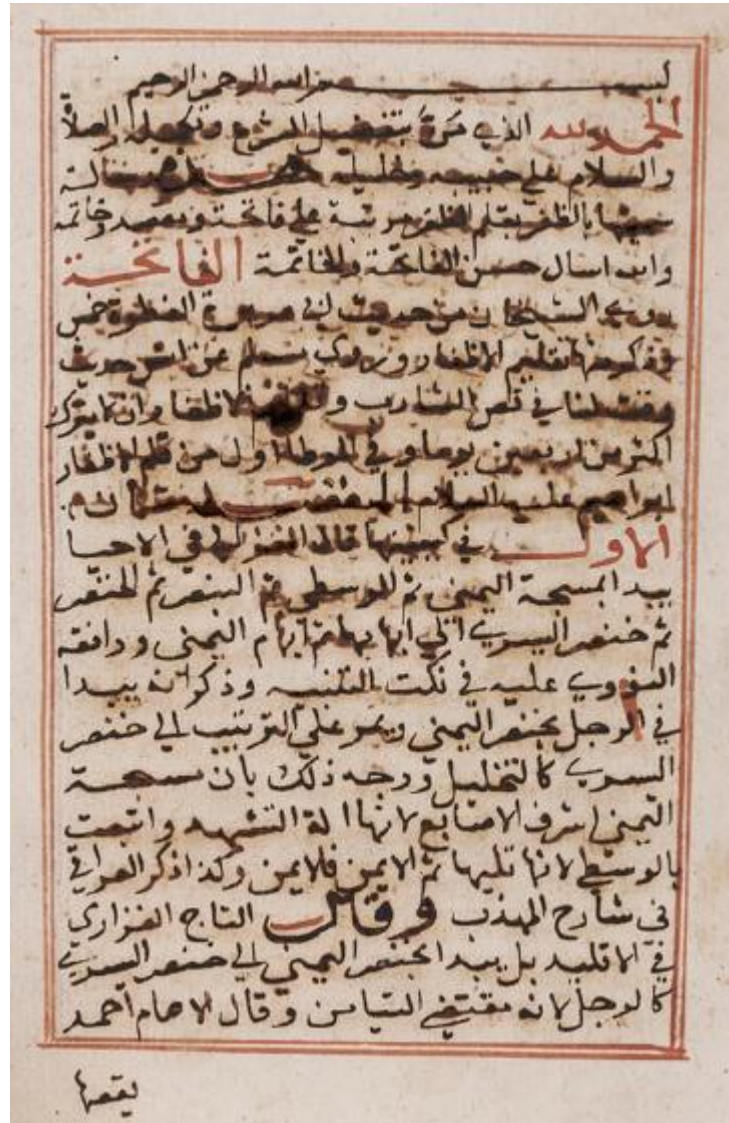 بسم الله الرحمن الرحيم
الحمد لله الذي من بتفضيل الشرع وتكميله والصلاة
والسلام على حبيبه وخليله وبعد فهذه رسالة
سميتها بالظفر بقلم الظفر مرتبة على فاتحة ومقصد وخاتمة
والله اسال حسن الفاتحة والخاتمة الفاتحة
روى الشيخان من حديث ابي هريرة الفطرة خمس
وذكر منها تقليم الاظفار وروى مسلم عن انس حديث
وقت لنا في قص الشارب وتقليم الاظفار ان لا يترك
اكثر من اربعين يوما وفي الموطا اول من قلم الاظفار
ابراهيم عليه السلام المقصد
الاول في كيفيتها قال الغزالي في الاحيا
يبدا بمسبحة اليمنى ثم الوسطى ثم البنصر ثم الخنصر
ثم خنصر اليسرى الى ابهامها ثم ابهام اليمنى ووافقه
النووي عليه في نكت التنبيه وذكر انه يبدا
في الرجل بخنصر اليمنى ويمر على الترتيب الى خنصر
اليسرى كالتخليل ووجه ذلك بان مسبحة
اليمنى اشرف الاصابع لانها الة التشهد واتبعت
بالوسطى لانها تليها ثم الايمن فلايمن وكذا ذكر العراقي
في شارح المهذب وقال التاج الفزاري
في الاقليد بل يبدا بخنصر اليمنى الى خنصر اليسرى
كالرجل لانه مقتضى التيامن وقال الامام احمد
يقصها